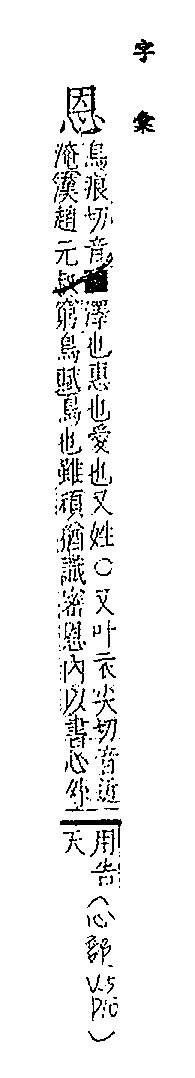 字彙
恩
烏痕切音 澤也惠也愛也又姓○又叶衣尖切音近
淹漢趙元 窮鳥賦鳥也雖頑猶識密恩內以書心外
用告
天
(心部
V.5
P.10)